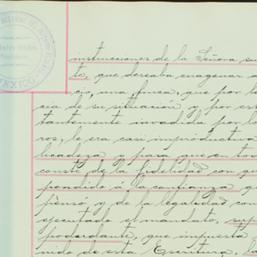 MEXICO
instrucciones de la Señora su
to, que deseaba enagenar a
cio, una finca, que por la
cia de su situación y por es
tantemente invadida por l
ros, le era casi improductiva
headeza y para que en tod
conste de la fidelidad con q
pondido á la confianza q
pensó y de la legalidad con
ejecutado el mandato, sup
poderdante, que impuesta
nido de esta Escritura, la